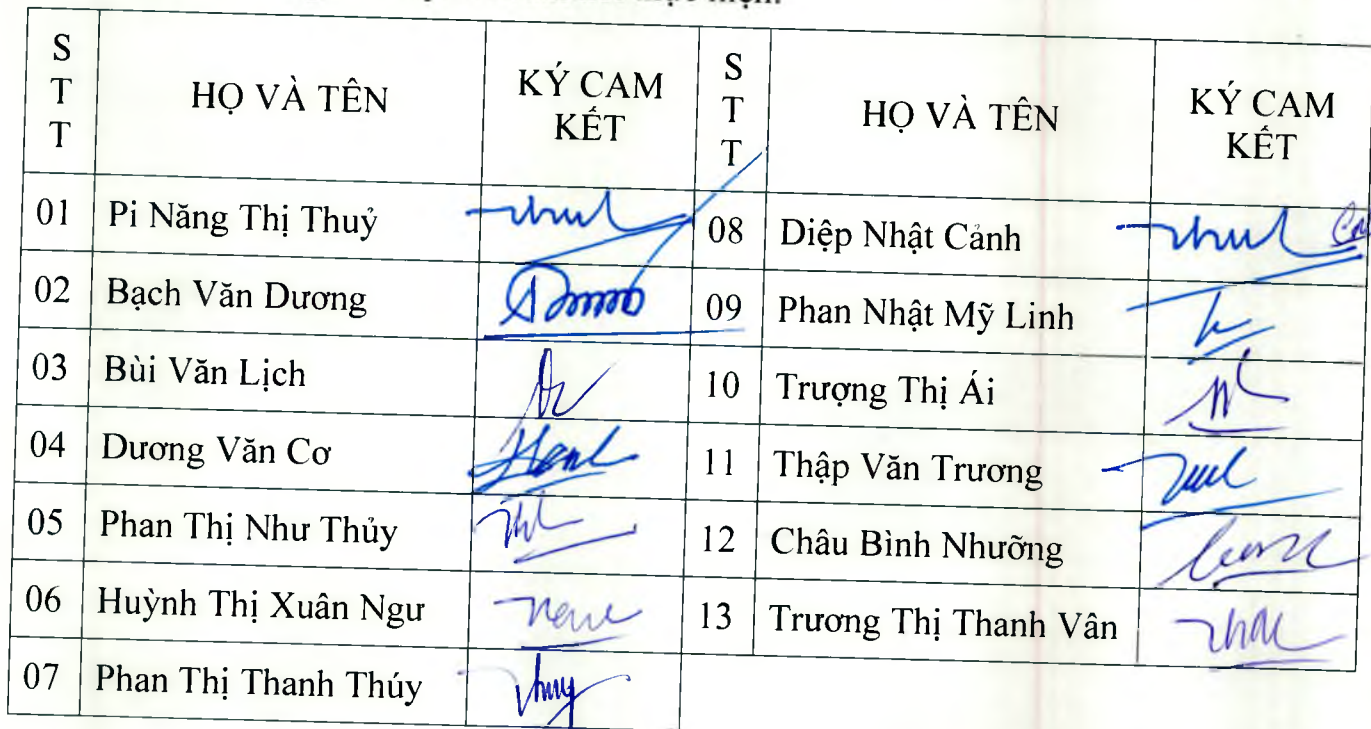 S T T HỌ VÀ TÊN KÝ CAM KẾT S T T HỌ VÀ TÊN KÝ CAM KẾT
01 Pi Năng Thị Thuỷ 08 Diệp Nhật Cảnh
02 Bạch Văn Dương 09 Phan Nhật Mỹ Linh
03 Bùi Văn Lịch 10 Trượng Thị Ái
04 Dương Văn Cơ 11 Thập Văn Trương
05 Phan Thị Như Thủy 12 Châu Bình Nhưỡng
06 Huỳnh Thị Xuân Ngư 13 Trương Thị Thanh Vân
07 Phan Thị Thanh Thúy